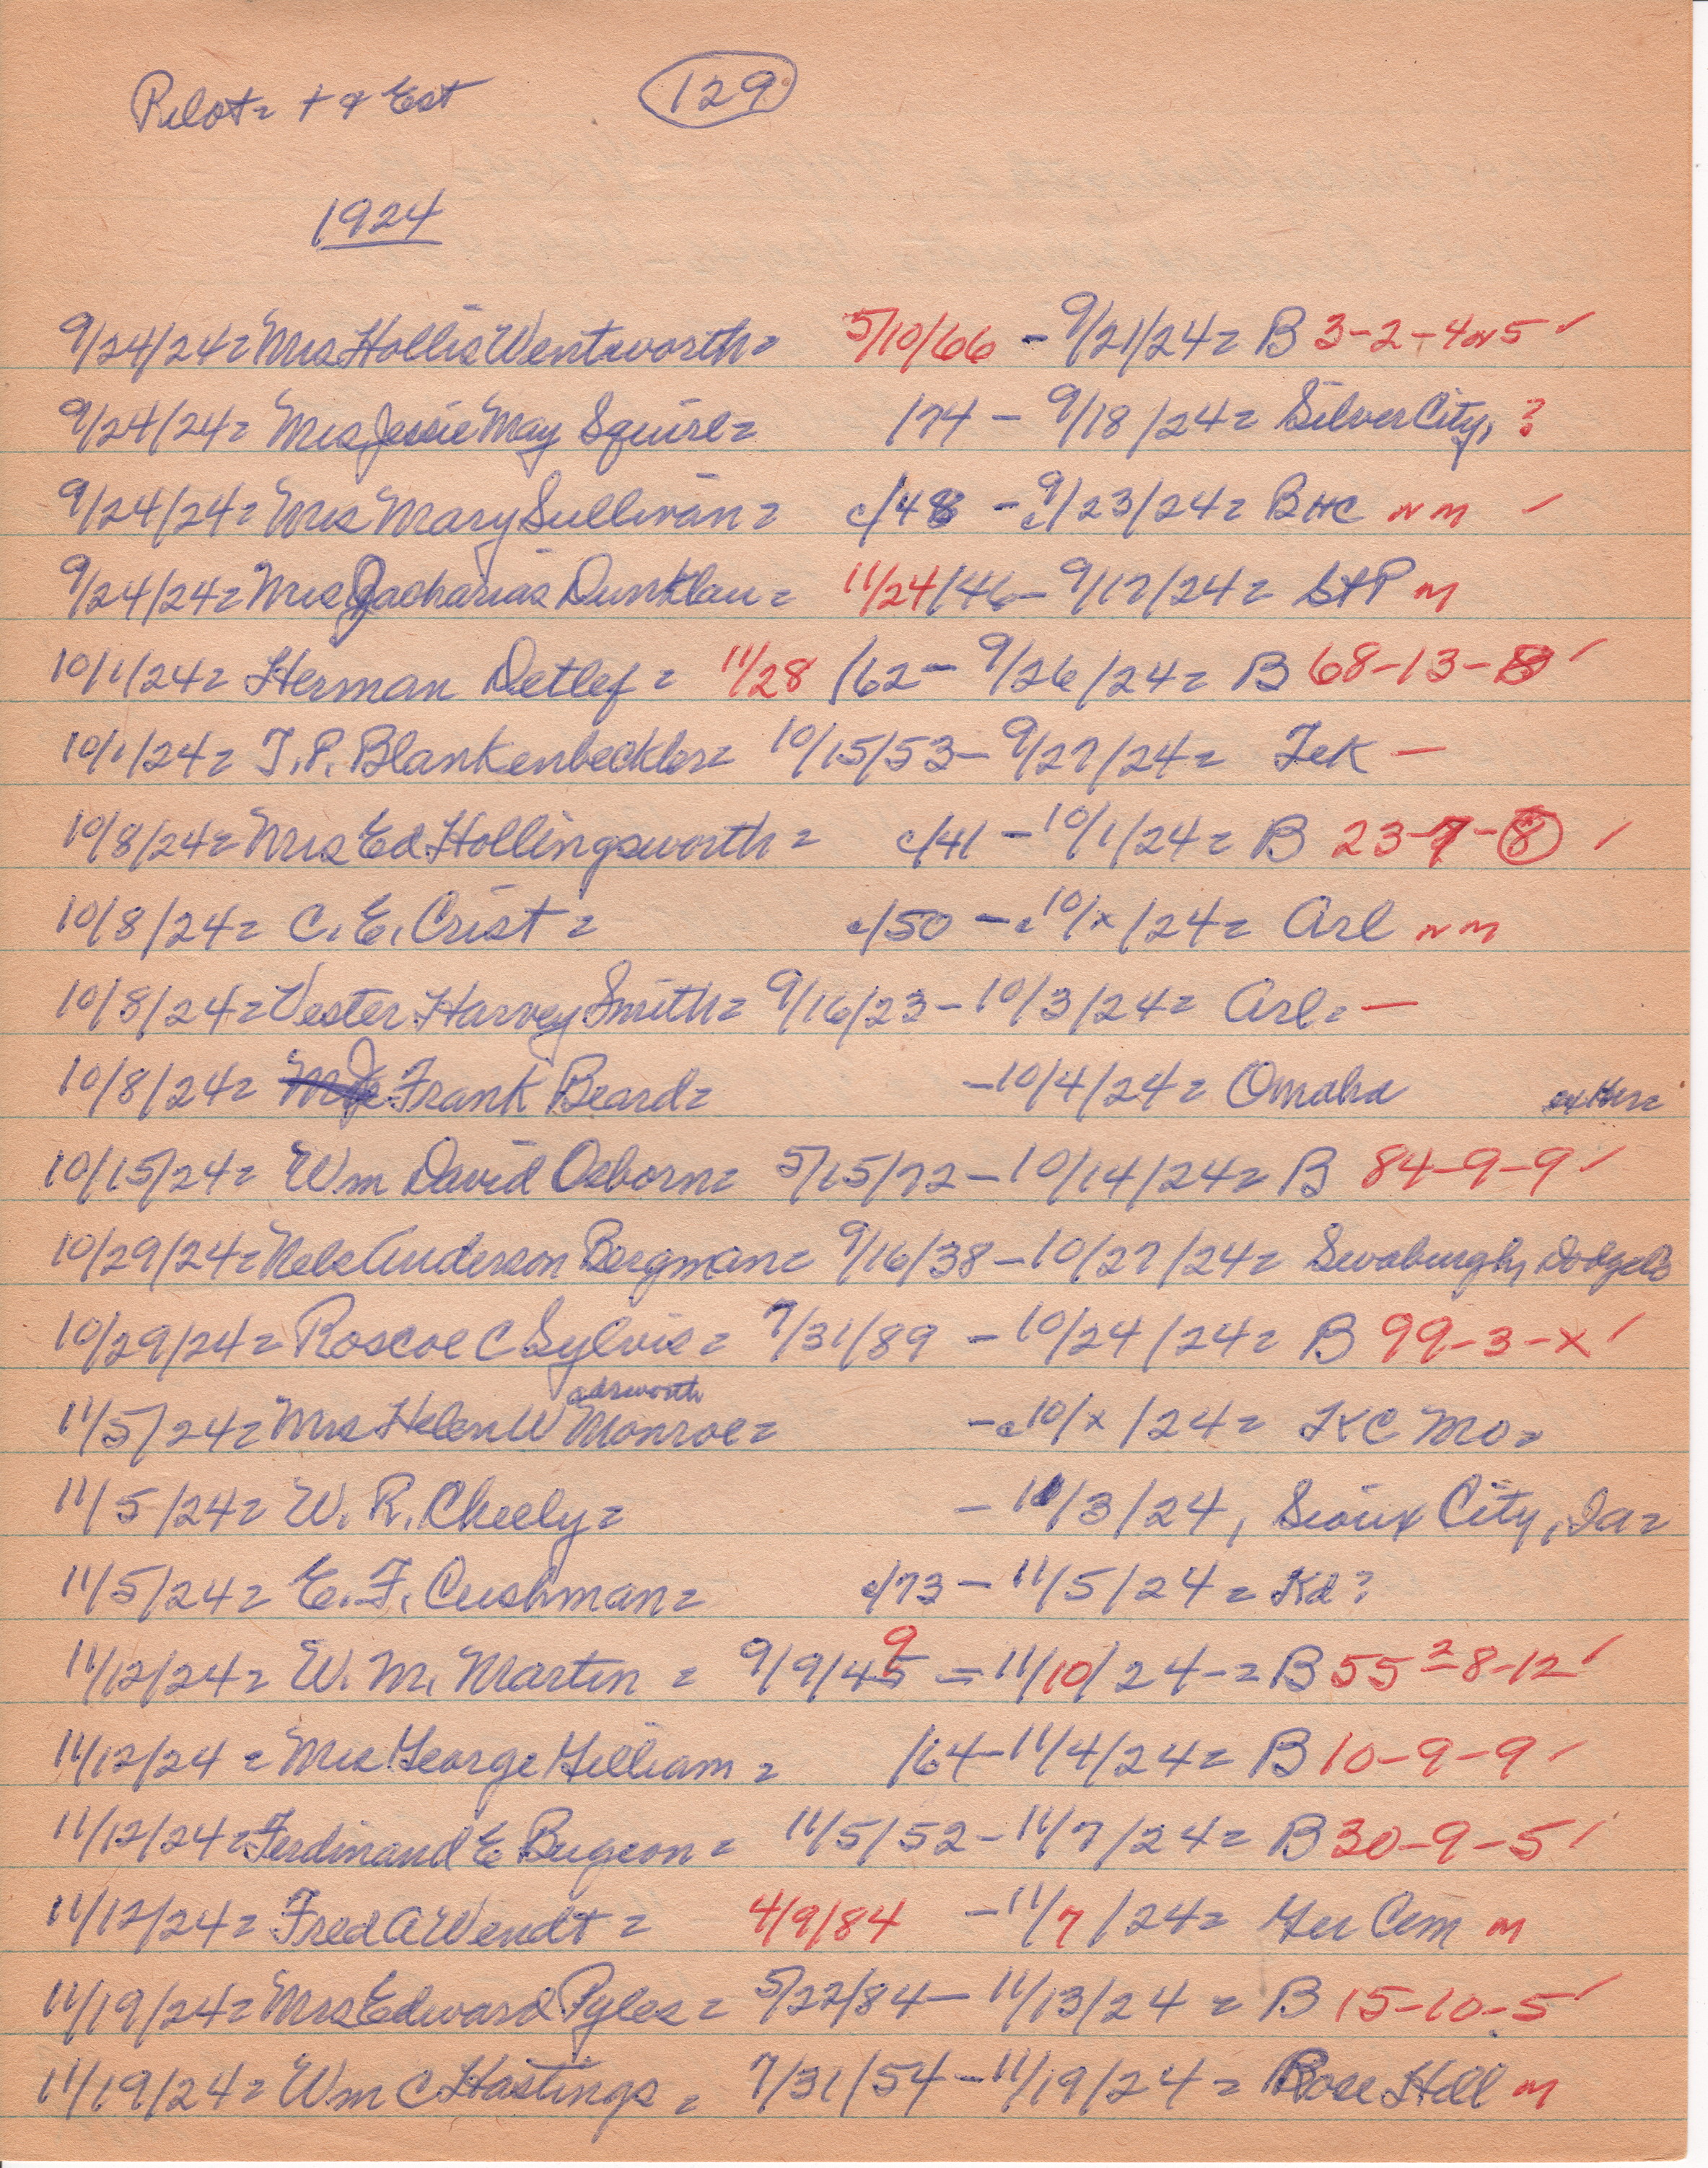 Pilot= + & Est (129)
1924
9/24/24= Mrs Hollis Wentworth= 5/10/66 - 9/21/24= B 3-2-4 or 5 ✓
9/24/24= Mrs Jessie May Squire= /74 - 9/18/24= Silver City, ?
9/24/24= Mrs Mary Sullivan= c/48 - c9/23/24= BHC NM ✓
9/24/24= Mrs Zacharias Dunklau= 11/24/46- 9/17/24= StP M
10/1/24= Herman Detlef= 11/28/62- 9/26/24= B 68-13-8 ✓
10/1/24= T.P. Blankenbeckler= 10/15/53- 9/27/24= Tek -
10/8/24= Mrs Ed Hollingsworth= c/41 - 10/1/24= B 23-7-8 ✓
10/8/24= C.E. Crist= c/50 - c10/x/24= Arl NM
10/8/24= Vester Harvey Smith= 9/16/23- 10/3/24= Arl= -
10/8/24= Frank Beard= -10/4/24= Omaha ex Her=
10/15/24= Wm David Osborn= 5/15/72-10/14/24= B 84-9-9 ✓
10/29/24= Nels Anderson Bergman= 9/16/38-10/27/24= Swaburgh, Dodge Co
10/29/24= Roscoe C Sylvis= 7/31/89 -10/24/24= B 99-3-x ✓
11/5/24= Mrs Helen Wadsworth Monroe= -c10/x/24= KC Mo=
11/5/24= W. R. Cheely= - 11/3/24, Sioux City, Ia=
11/5/24= E. F. Cushman= c/73 - 11/5/24= Kd?
11/12/24= W. M. Martin = 9/9/49 = 11/10/24-= B 55 2-8-12 ✓
11/12/24 = Mrs George Gilliam= /64-11/4/24= B 10-9-9 ✓
11/12/24= Ferdinand E Bugeon= 11/5/52-11/7/24= B 30-9-5 ✓
11/12/24= Fred A Wendt= 4/9/84 -11/7/24= Ger Cem M
11/19/24= Mrs Edward Pyles= 5/22/84- 11/13/24 = B 15-10-5 ✓
11/19/24= Wm C Hastings= 7/31/54-11/19/24= Rose Hill M